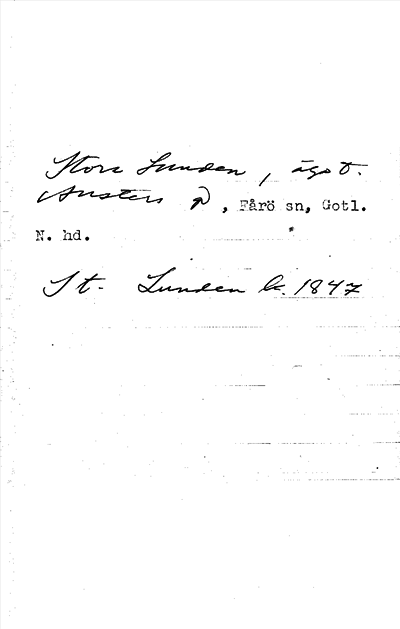 Stora Lunden, ägot.
Austers P, Fårö sn, Gotl.
N. hd.
St. Lunden k. 1847